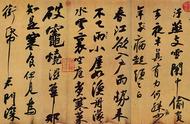 闇中偷負
去夜半真有力何殊
年病起頭已白
春江欲入戶雨勢來
不已小屋如漁舟濛濛
水雲裏空庖煮寒菜
破竈燒濕葦那知
是寒食但見烏
銜帋君門深